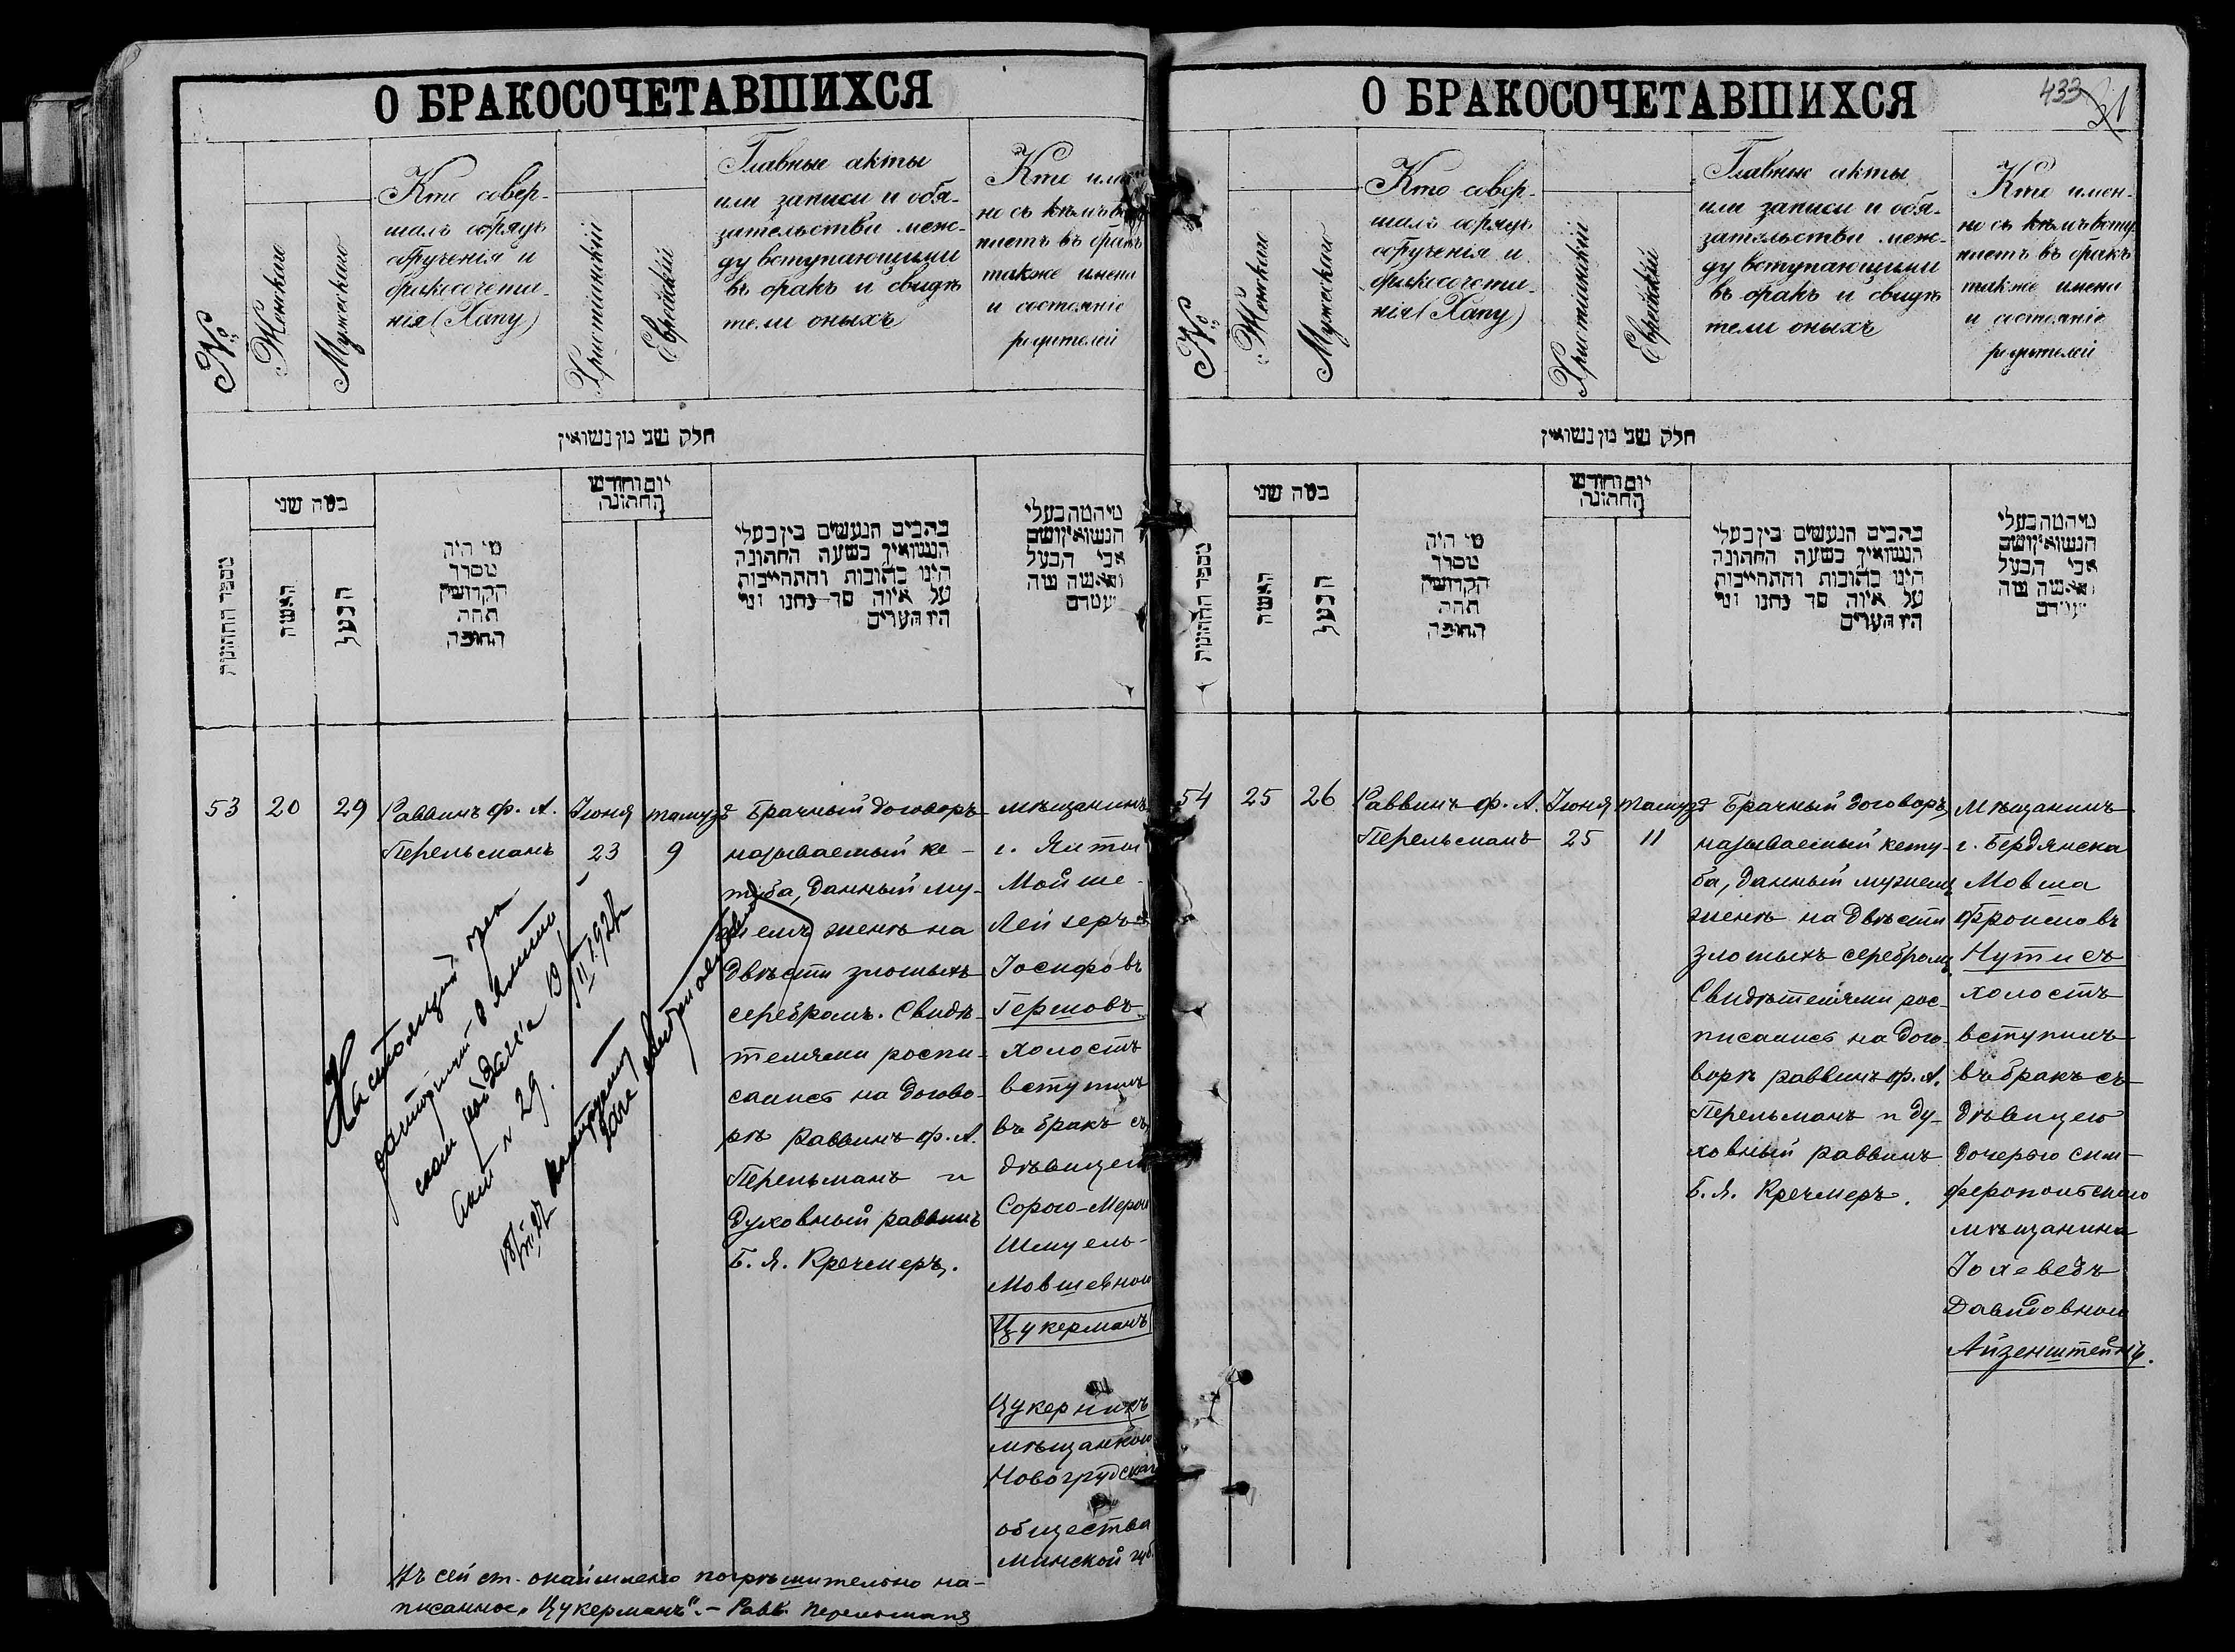 О БРАКОСОЧЕТАВШИХСЯ
№
Женскаго
Мужескаго
Кто совер-
шалъ обрядъ
обрученія и
бракосочета-
нія (Хапу)
Христіанскій
Еврейскій
Главные акты
или записи и обя-
зательства меж-
ду вступающими
въ бракъ и свидѣ
тели оныхъ
Кто имен
но съ кѣмъ всту
паетъ въ бракъ
также имена
и состояніе
родителей
חלק שני מן נשואין
מספר החתונות
כמה שני
האשה
הבעל
מי היה
מסדר
הקדושין
תחת
החופה
יום וחודש
החתונה
כתבים הנעשים בין בעלי
הנשואין בשעה החתונה
הינו כתובות והתחייבות
על איזה סך נתנו ומי
היו העדים
מי המה בעלי
הנשואין ושם
אבי הבעל
והאשה מה
מעמדם
53
20
29
Раввинъ Ф. А.
Перельманъ
Іюня
23
тамузъ
9
Брачный договоръ
называемый ке-
туба, данный му-
жемъ женѣ на
двѣсти злотыхъ
серебромъ. Свидѣ-
телями роспи-
сались на догово-
рѣ раввинъ Ф. А.
Перельманъ и
духовный раввинъ
Б. Я. Кречмеръ.
мѣщанинъ
г. Ялты
Мойше-
Лейзеръ
Іосифовъ
Гершовъ
холостъ
вступилъ
въ бракъ съ
дѣвицею
Сорою-Мерою
Шмуель-
Мовшевною
Цукерманъ
Цукерникъ
мѣщанкою
Новогрудскаго
общества
Минской губ.
Настоящий брак
расторгнут в Ялтин
ском
19/II 1927
Акт № 29.
Въ сей ст. окаймлено погрѣшительно на-
писанное „Цукерманъ“. — Равв. Перельманъ
О БРАКОСОЧЕТАВШИХСЯ
433
№
Женскаго
Мужескаго
Кто совер-
шалъ обрядъ
обрученія и
бракосочета-
нія (Хапу)
Христіанскій
Еврейскій
Главные акты
или записи и обя-
зательства меж-
ду вступающими
въ бракъ и свидѣ
тели оныхъ
Кто имен-
но съ кѣмъ всту
паетъ въ бракъ
также имена
и состояніе
родителей
חלק שני מן נשואין
מספר החתונות
כמה שני
האשה
הבעל
מי היה
מסדר
הקדושין
תחת
החופה
יום וחודש
החתונה
כתבים הנעשים בין בעלי
הנשואין בשעה החתונה
הינו כתובות והתחייבות
על איזה סך נתנו ומי
היו העדים
מי המה בעלי
הנשואין ושם
אבי הבעל
והאשה מה
מעמדם
54
25
26
Раввинъ Ф. А.
Перельманъ
Іюня
25
тамузъ
11
Брачный договоръ,
называемый кету-
ба, данный мужемъ
женѣ на двѣсти
злотыхъ серебромъ
Свидѣтелями рос-
писались на дого-
ворѣ раввинъ Ф. А.
Перельманъ и ду-
ховный раввинъ
Б. Я. Кречмеръ.
Мѣщанинъ
г. Бердянска
Мовша
Фроимовъ
Нутисъ
холостъ
вступилъ
въ бракъ съ
дѣвицею
дочерью сим-
феропольскаго
мѣщанина
Іохеведъ
Давидовною
Айзенштейнъ.